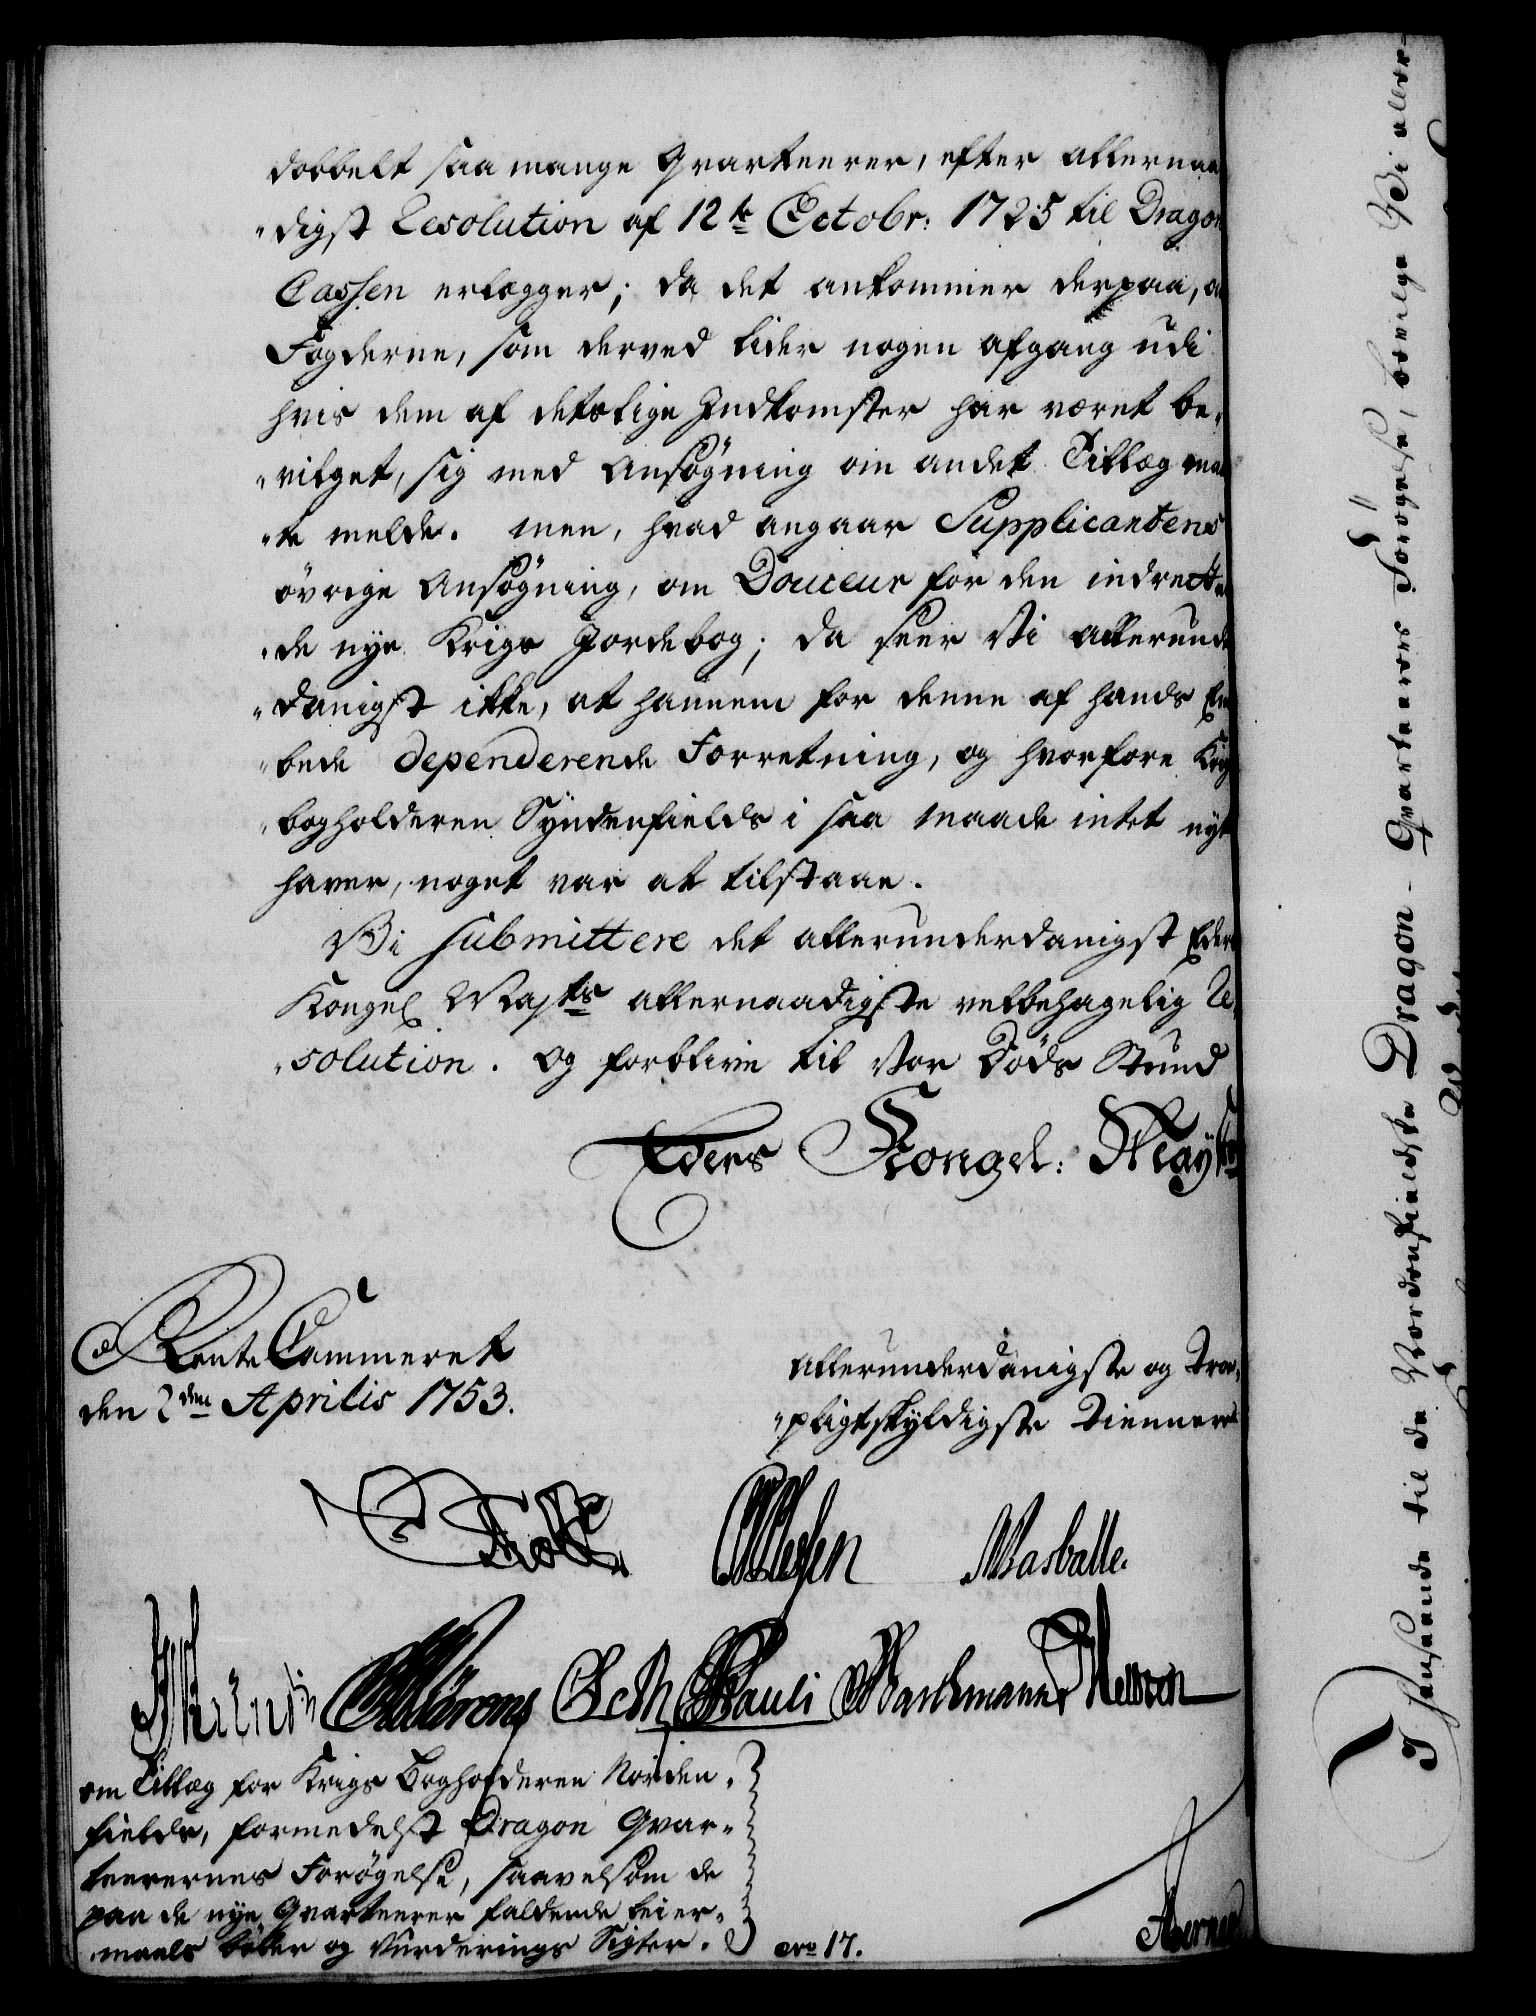 dobbelt saa mange Qvarteerer, efter allernaa
-digst Resolution af 12te Octobr: 1725 til Dragon
Cassen erlægger; da det ankommer derpaa, at
Fogderne, som derved lider nogen afgang udi
hvis dem af deslige Indkomster har været be-
-vilget, sig med Ansøgning om andet Tillæg maa
-te melde. men, hvad angaar Supplicantens
øvrige Ansøgning, om Douceur for den indrette
-de nye Krigs Jordebog; da seer Vi allerunder
-danigst ikke, at hannem for denne af hands Em
-bede dependerende Forretning, og hvorfore Krigs
-bogholderen Syndenfields i saa maade intet nyt
haver, noget var at tilstaae.
Vi submittere det allerunderdanigst Eders
Kongel Maj:ts allernaadigste velbehagelig Re-
-solution. og forblive til Vor Døds Stund
Eders Kongel: Mayts
Rente Cammeret
den 2den Aprilis 1753.
allerunderdanigste og Troe-
-pligtskyldigste Tiennere
Holst Olesen Masballe.
Klörens Seth Pauli Barchmann
om Tillæg for Krigs Bogholderen Norden-
fields, formedelst Dragon Qvar-
teerernes Forøgelse, saavelsom de
paa de nye Qvarteerer faldende leier-
maals bøder og Vurderings Sigter.
No 17.
I Henseende til de Nordenfieldske Dragon-Qvarteeres Forøgelse, bevilge Vi aller-